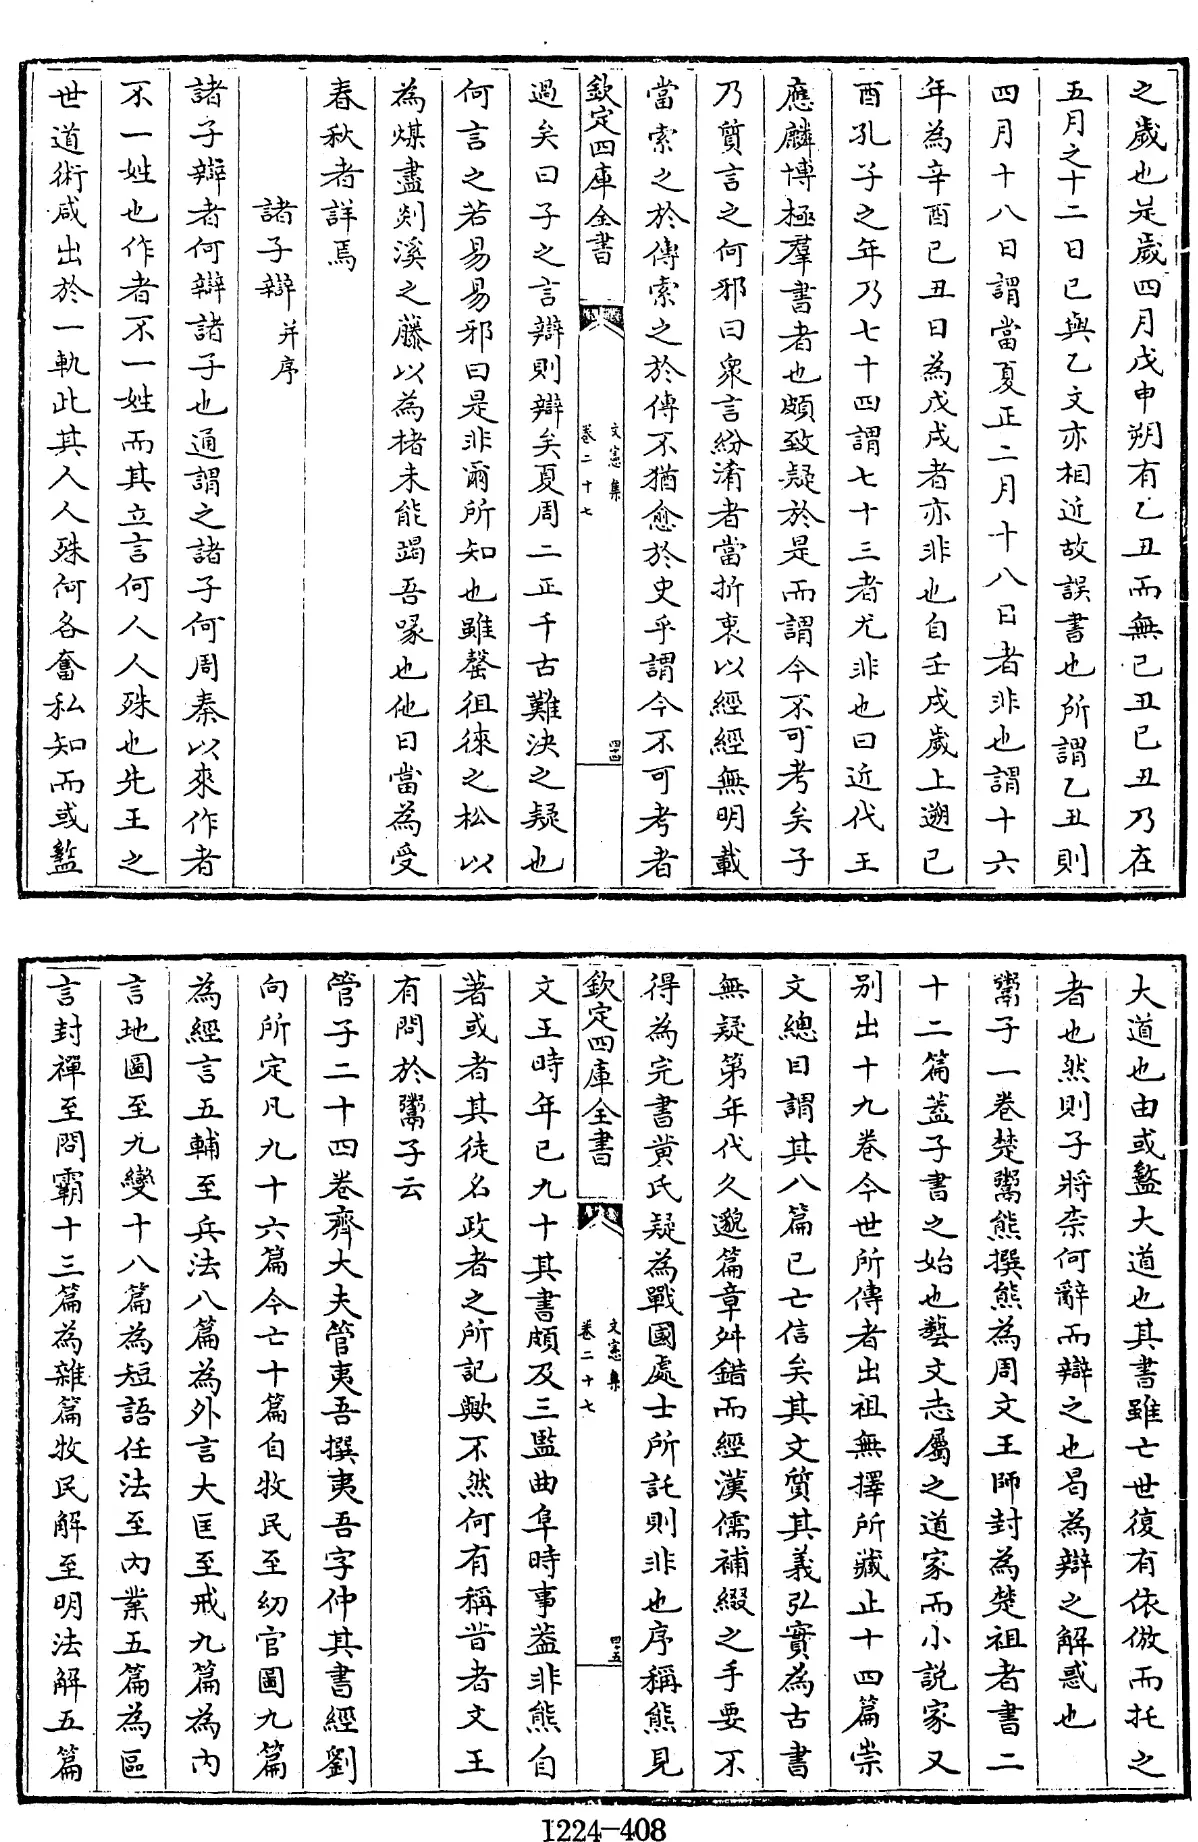 之歲也是歲四月戊申朔有乙丑而無己丑己丑乃在
五月之十二日已與乙文亦相近故誤書也所謂乙丑則
四月十八日謂當夏正二月十八日者非也謂十六
年為辛酉己丑日為戊戌者亦非也自壬戌歲上遡已
酉孔子之年乃七十四謂七十三者尤非也曰近代王
應麟博極羣書者也頗致疑於是而謂今不可考矣子
乃質言之何邪曰衆言紛淆者當折衷以經經無明載
當索之於傳索之於傳不猶愈於史乎謂今不可考者
欽定四庫全書
文憲集
卷二十七
四十四
過矣曰子之言辯則辯矣夏周二正千古難決之疑也
何言之若易易邪曰是非爾所知也雖罄徂徠之松以
為煤盡剡溪之藤以為楮未能竭吾喙也他日當為受
春秋者詳焉
諸子辯并序
諸子辯者何辯諸子也通謂之諸子何周秦以來作者
不一姓也作者不一姓而其立言何人人殊也先王之
世道術咸出於一軌此其人人殊何各奮私知而或盭
大道也由或盭大道也其書雖亡世復有依倣而托之
者也然則子將奈何辭而辯之也曷為辯之解惑也
鬻子一卷楚鬻熊撰熊為周文王師封為楚祖者書二
十二篇蓋子書之始也藝文志屬之道家而小說家又
别出十九卷今世所傳者出祖無擇所藏止十四篇崇
文總目謂其八篇已亡信矣其文質其義弘實為古書
無疑第年代久邈篇章舛錯而經漢儒補綴之手要不
得為完書黄氏疑為戰國處士所託則非也序稱熊見
欽定四庫全書
文憲集
卷二十七
四十五
文王時年已九十其書頗及三監曲阜時事葢非熊自
著或者其徒名政者之所記歟不然何有稱昔者文王
有問於鬻子云
管子二十四卷齊大夫管夷吾撰夷吾字仲其書經劉
向所定凡九十六篇今亡十篇自牧民至幼官圖九篇
為經言五輔至兵法八篇為外言大匡至戒九篇為内
言地圖至九變十八篇為短語任法至内業五篇為區
言封禪至問霸十三篇為雜篇牧民解至明法解五篇
1224-408